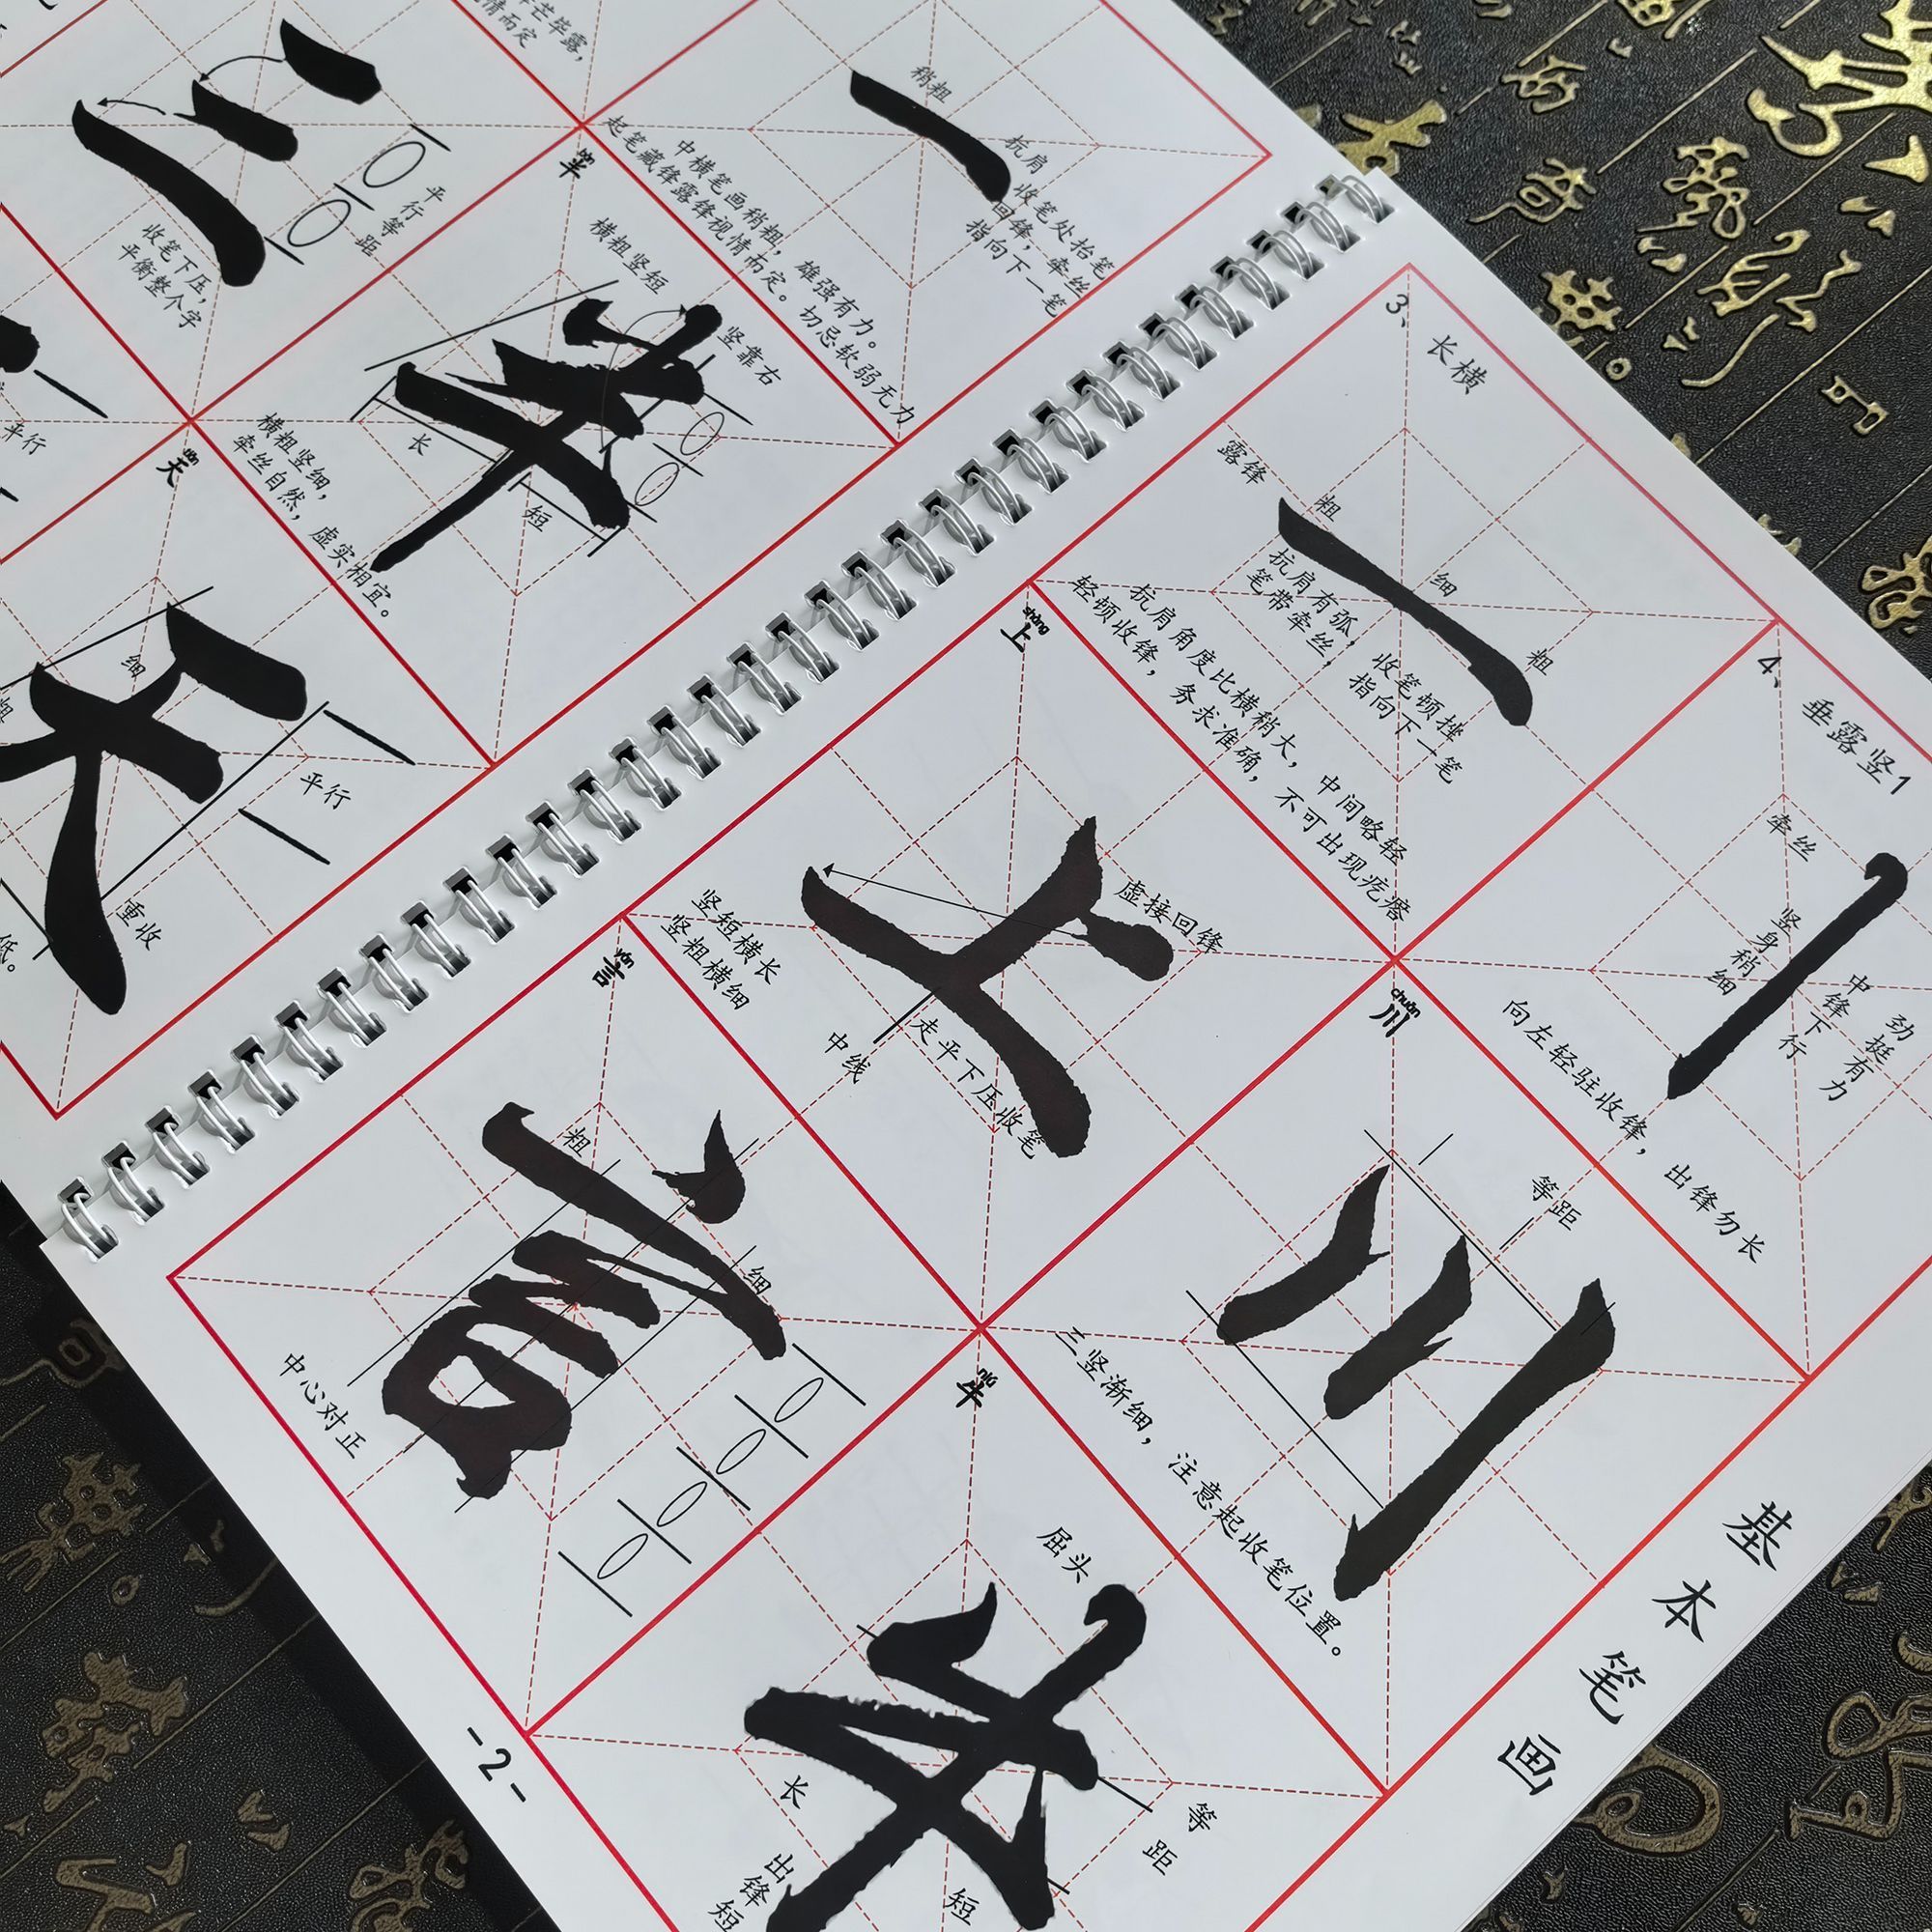 芒毕露,
情而定
稍粗
抗肩
收笔处抬笔
回锋,牵丝
指向下一笔
中横笔画稍粗,雄强有力。
起笔藏锋露锋视情而定。切忌软弱无力
三
平行等距
收笔下压,
平衡整个字
bàn
半
横粗竖短
竖靠右
长
短
横粗竖细,
牵丝自然,虚实相宜。
半
平行
天
细
粗
平行
重收
低。
天
3、
长横
露锋
粗
细
粗
抗肩有弧,收笔顿挫
笔带牵丝,指向下一笔
抗肩角度比横稍大,中间略轻
轻顿收锋,务求准确,不可出现疙瘩
4、
垂露竖1
牵丝
竖身稍细
中锋下行
劲挺有力
向左轻驻收锋,出锋勿长
shàng
上
虚接回锋
竖短横长
竖粗横细
中线
走平下压收笔
上
chuān
川
等距
三竖渐细,注意起收笔位置。
川
yán
言
粗
细
中心对正
言
niú
牛
屈头
长
短
等距
出锋短
牛
基本笔画
-2-